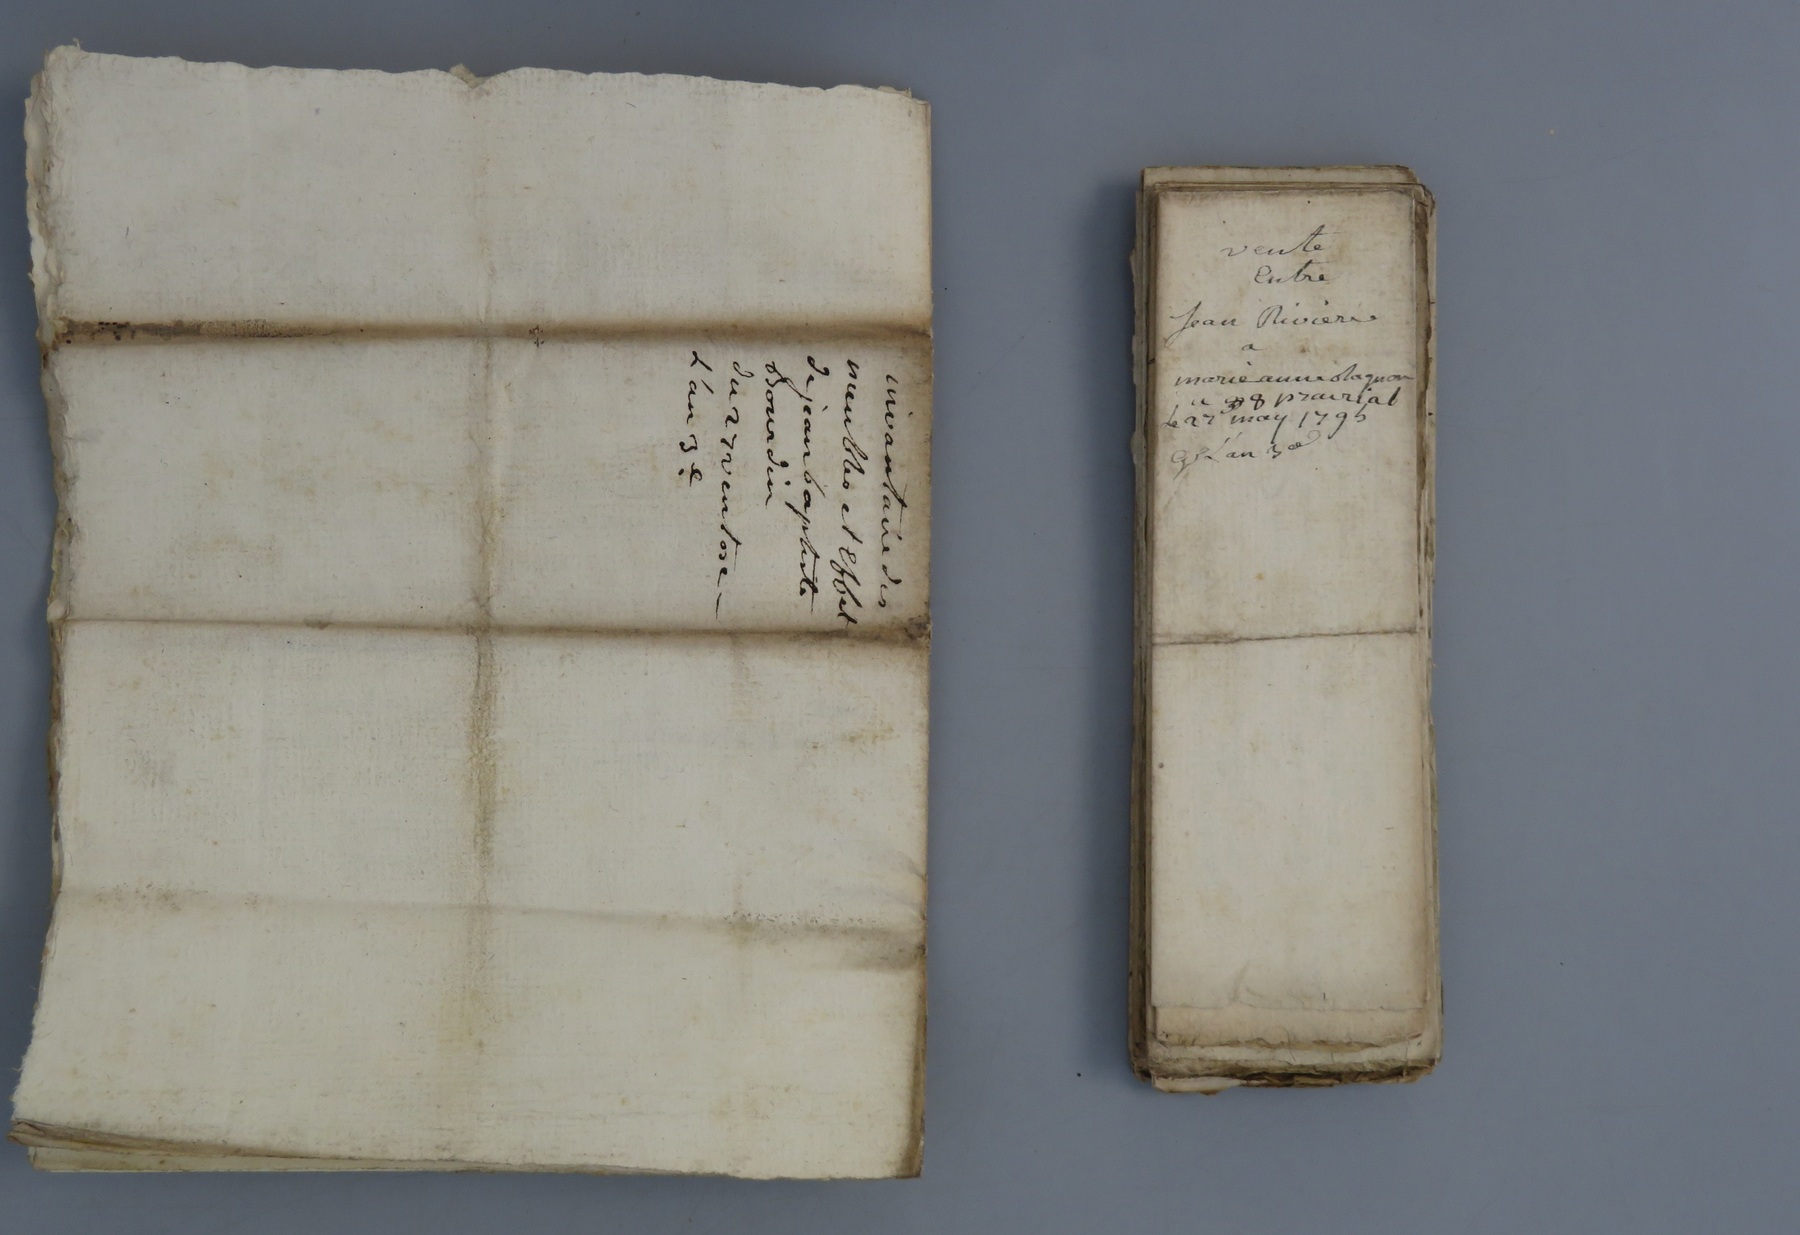 invantaire des
meubles et Effet
de jean baptiste
Bourdin
du 27 ventose
L'an 3e
vente
Entre
Jean Riviere
a
marie anne
8 prairial
le 27 may 1795
L'an 3e